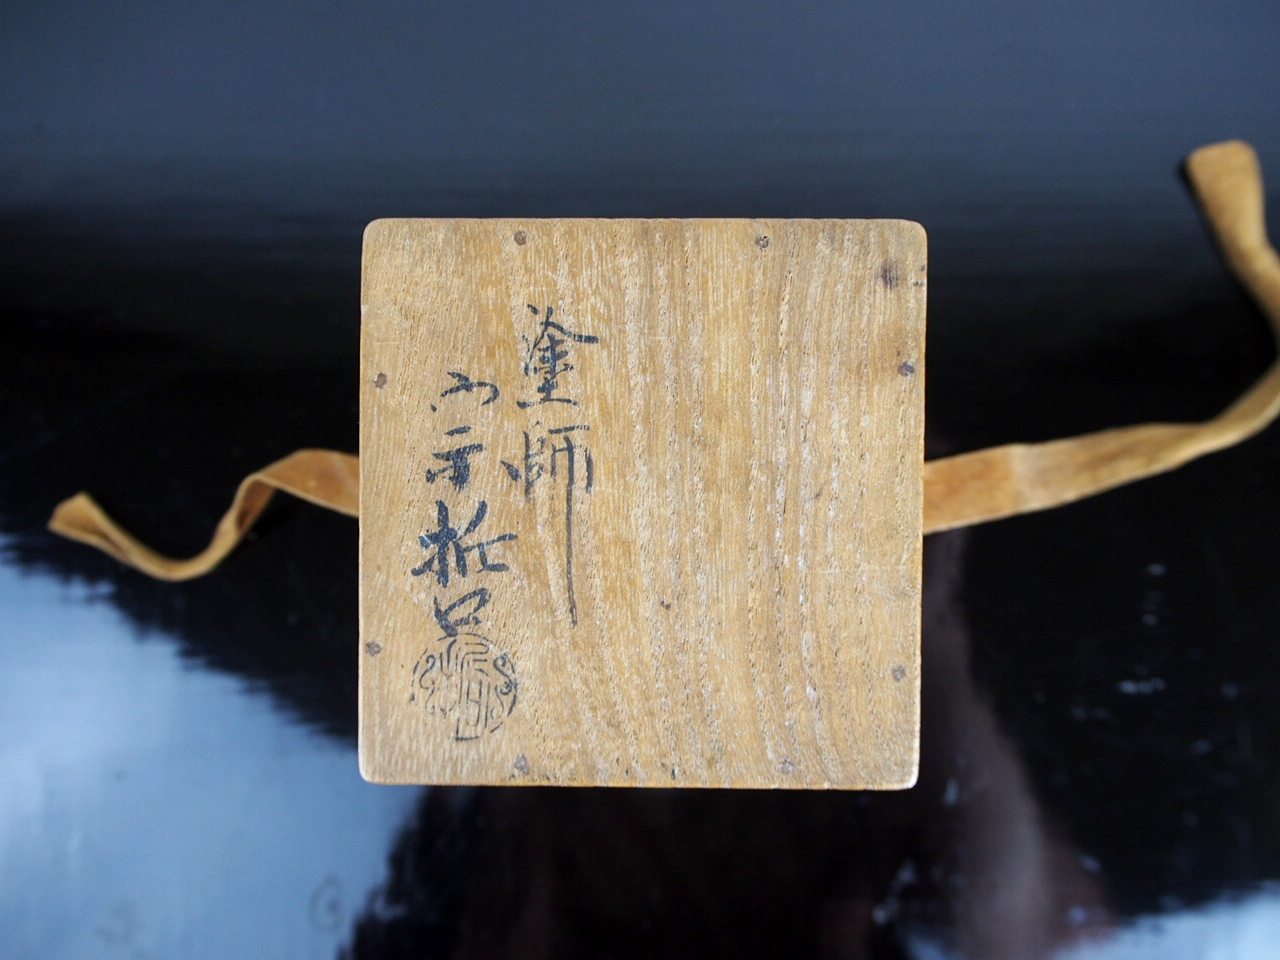 塗師
宗哲